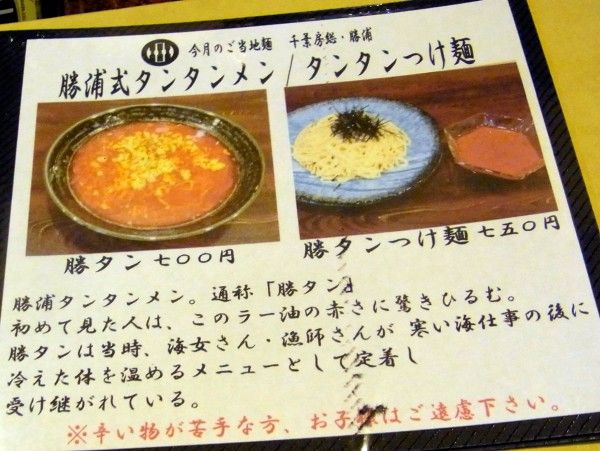 今月のご当地麺 千葉房総・勝浦
勝浦式タンタンメン/タンタンつけ麺
勝タン 七〇〇円
勝タンつけ麺 七五〇円
勝浦タンタンメン。通称「勝タン」
初めて見た人は、このラー油の赤さに驚きひるむ。
勝タンは当時、海女さん・漁師さんが 寒い海仕事の後に
冷えた体を温めるメニューとして定着し
受け継がれている。
※辛い物が苦手な方、お子様はご遠慮下さい。